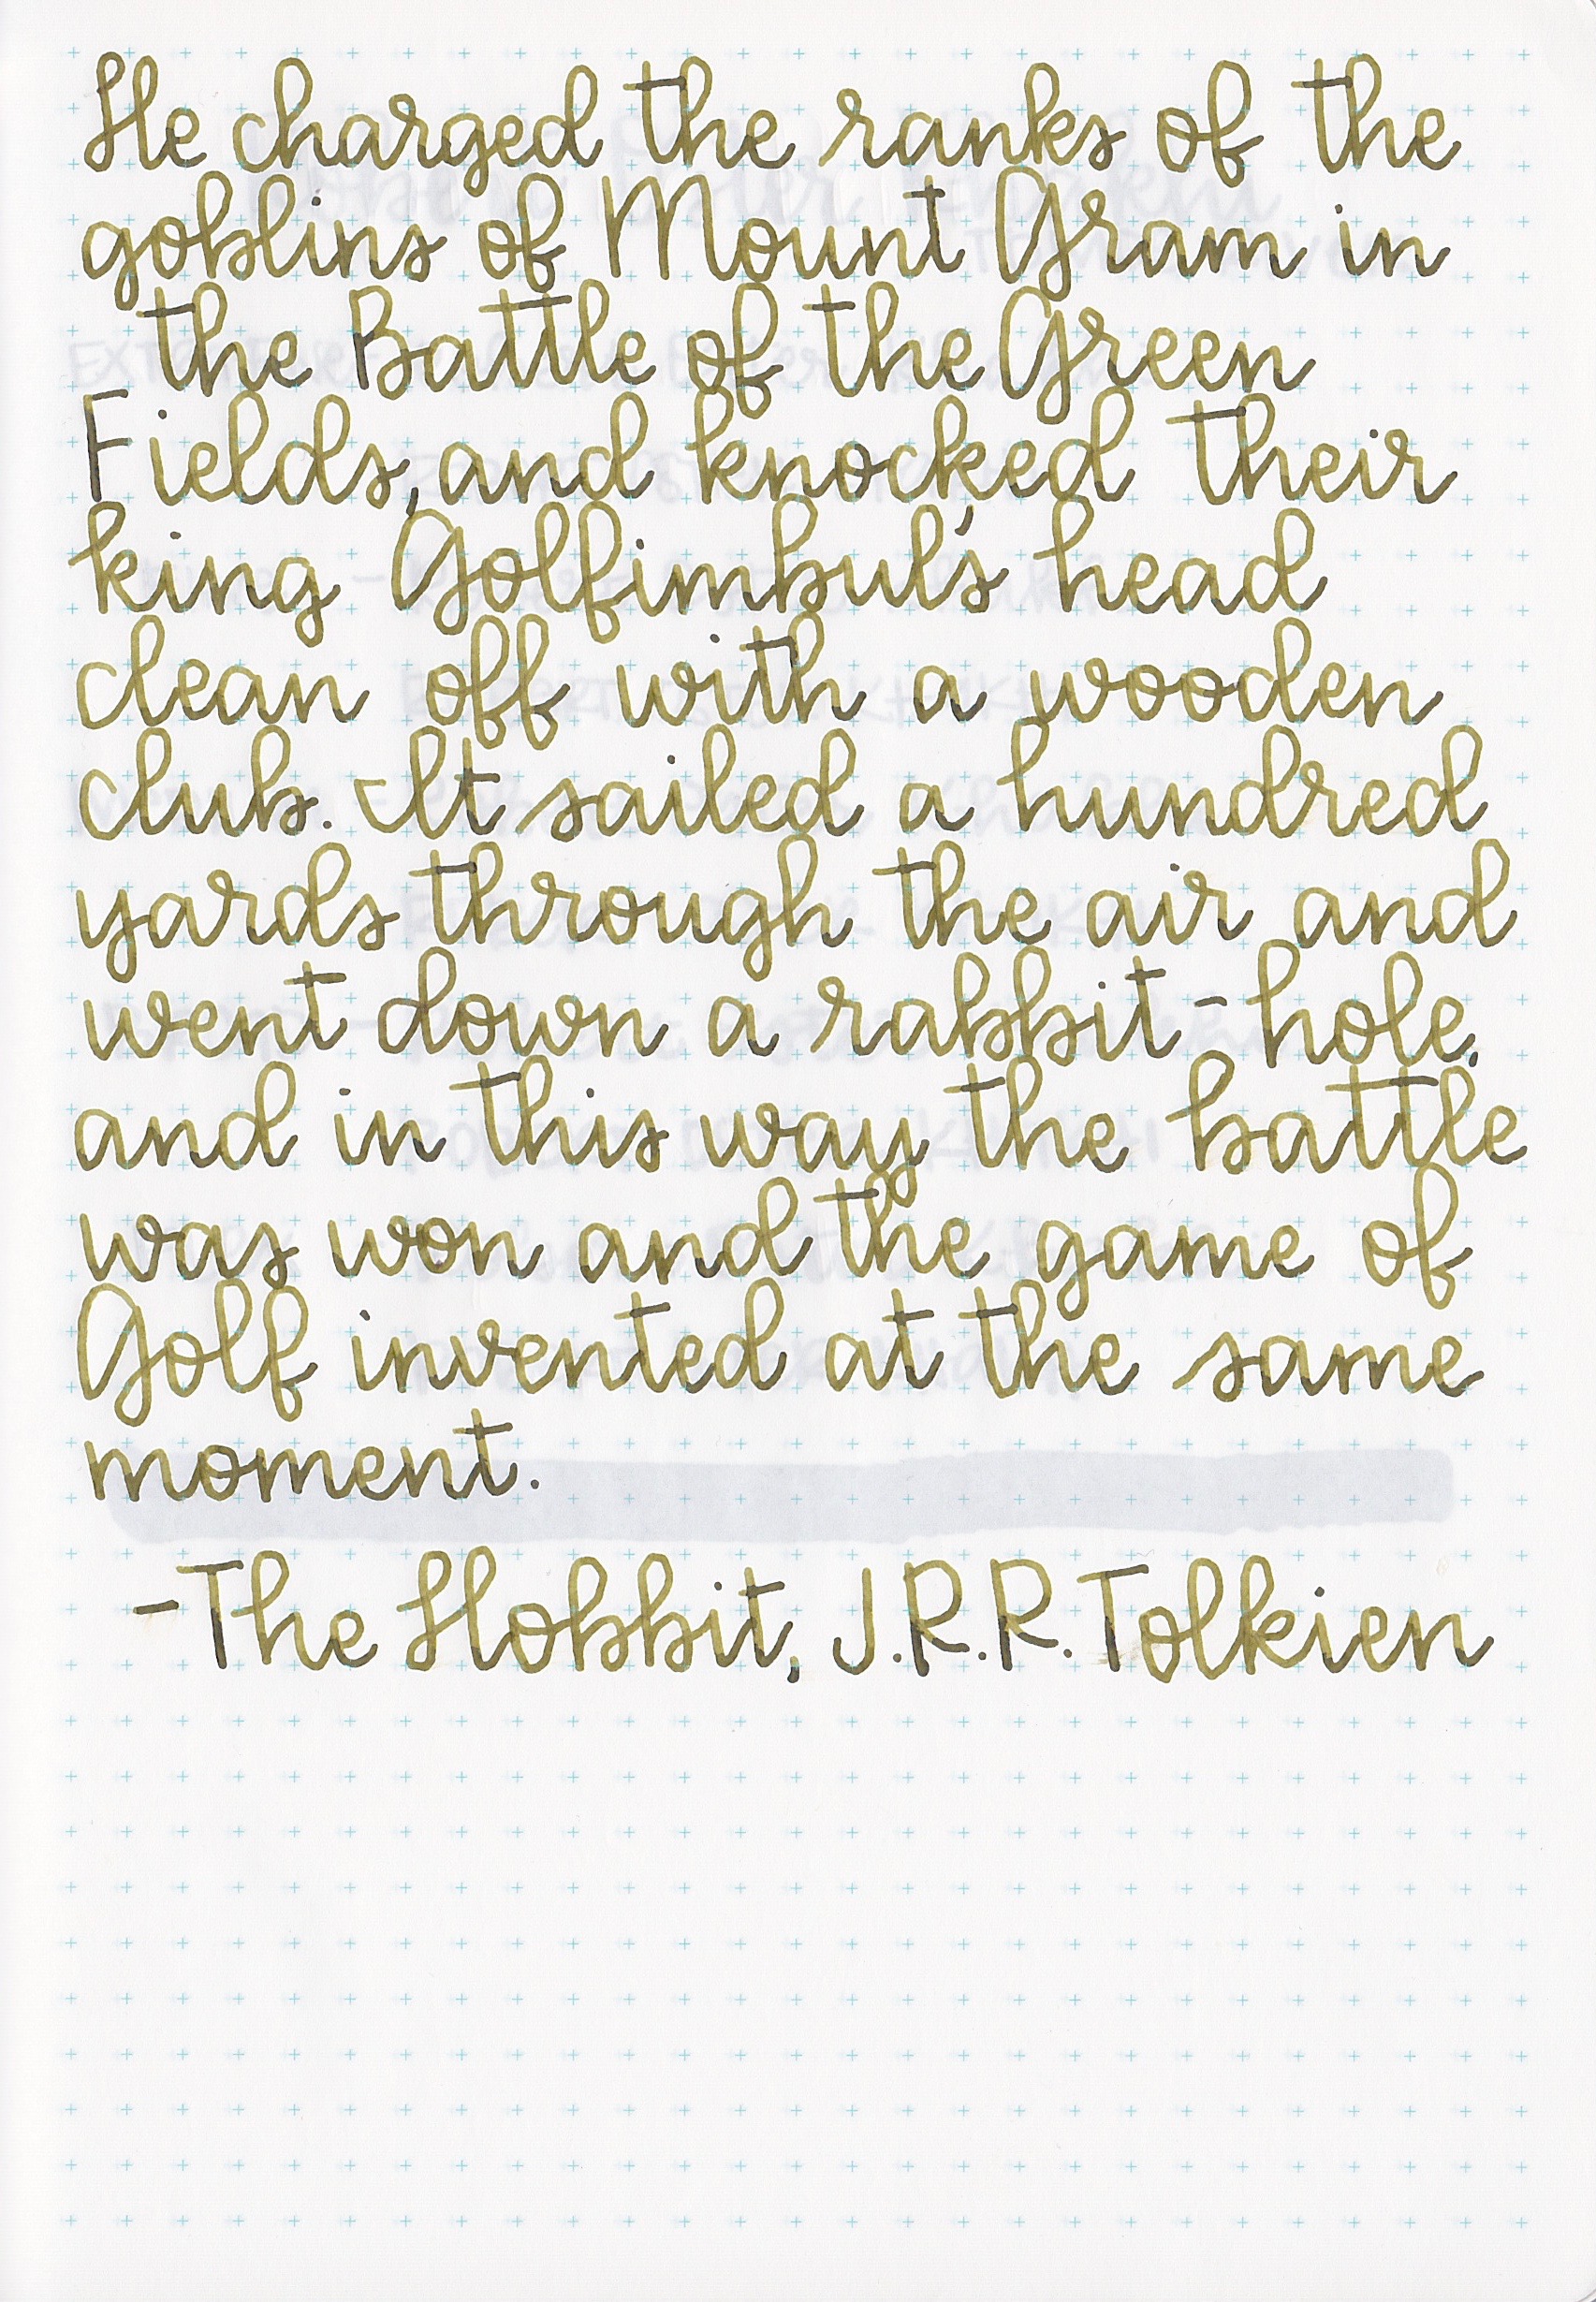 He charged the ranks of the
goblins of Mount Gram in
the Battle of the Green
Fields, and knocked their
king Golfimbul's head
clean off with a wooden
club. It sailed a hundred
yards through the air and
went down a rabbit-hole,
and in this way the battle
was won and the game of
Golf invented at the same
moment.
-The Hobbit, J.R.R. Tolkien